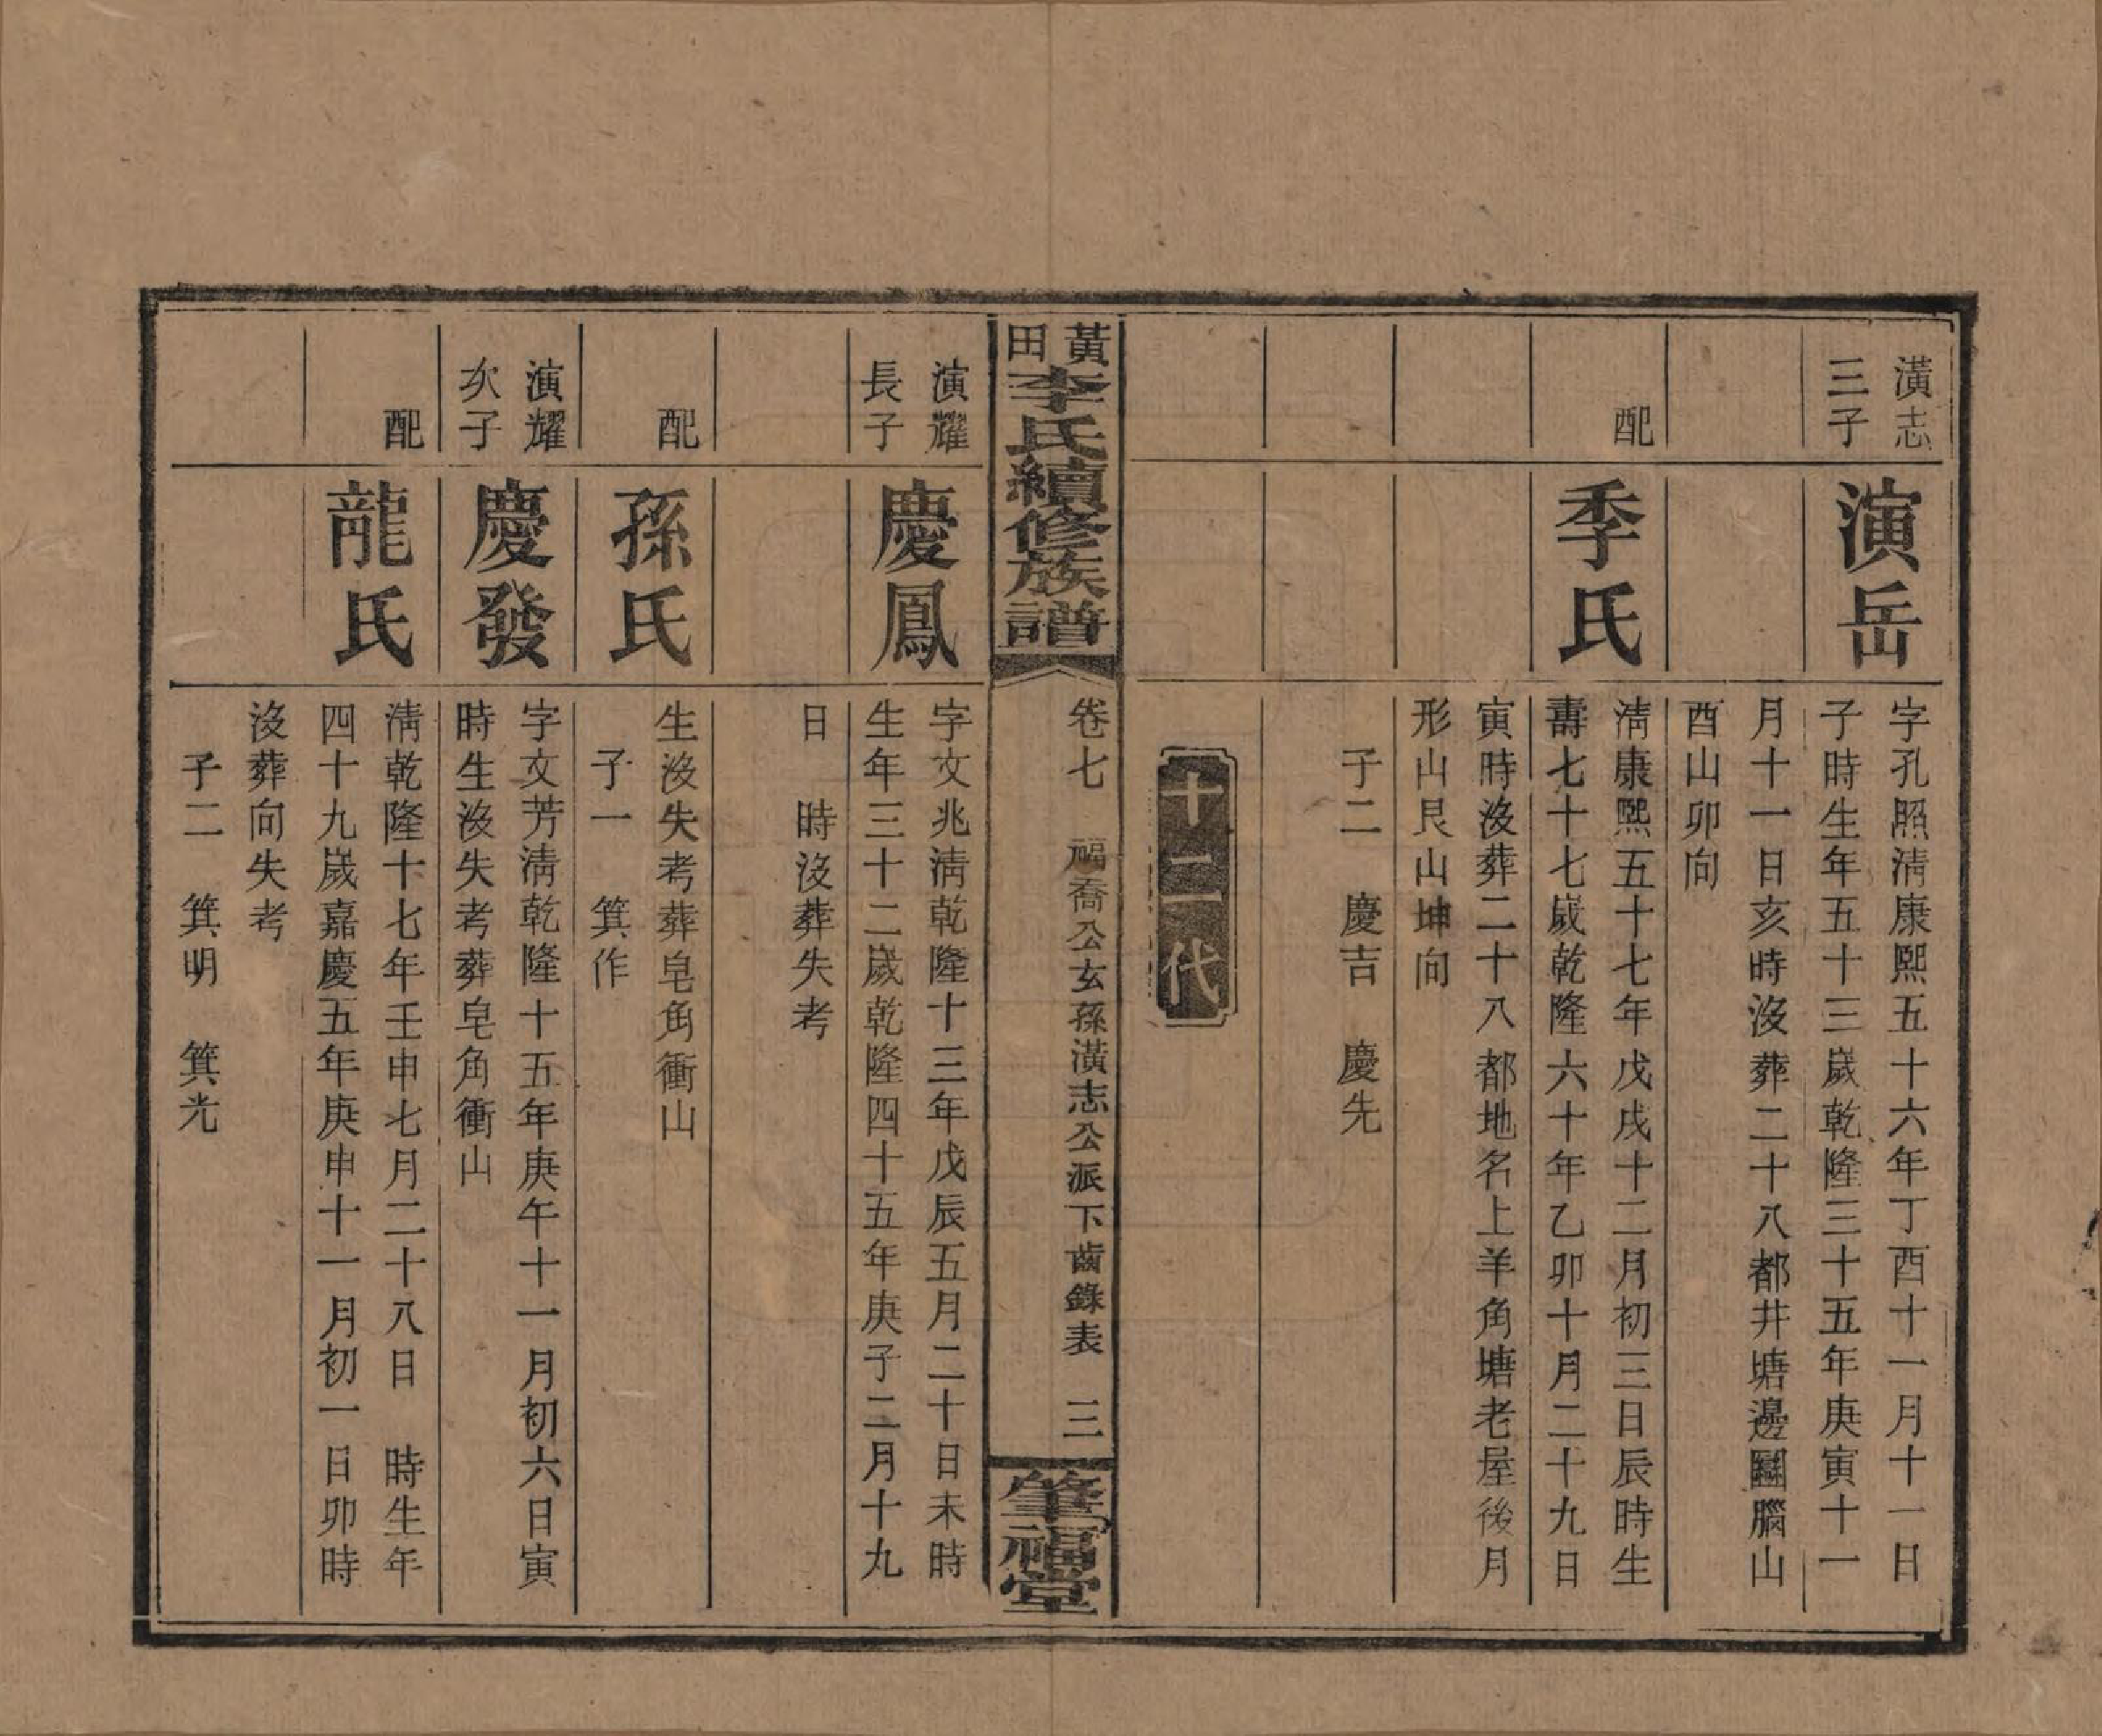 潢志
三子
演岳
字孔照淸康熙五十六年丁酉十一月十一日
子時生年五十三歲乾隆三十五年庚寅十一
月十一日亥時沒葬二十八都井塘邊圝腦山
酉山卯向
配
季氏
淸康熙五十七年戊戌十二月初三日辰時生
壽七十七歲乾隆六十年乙卯十月二十九日
寅時沒葬二十八都地名上羊角塘老屋後月
形山艮山坤向
子二　慶吉　慶先
十二代
黃田李氏續修族譜
卷七　福喬公玄孫潢志公派下齒錄表　三
肇福堂
演耀
長子
慶鳳
字文兆淸乾隆十三年戊辰五月二十日未時
生年三十二歲乾隆四十五年庚子二月十九
日　時沒葬失考
配
孫氏
生沒失考葬皂角衝山
子一　箕作
演耀
次子
慶發
字文芳淸乾隆十五年庚午十一月初六日寅
時生沒失考葬皂角衝山
配
龍氏
淸乾隆十七年壬申七月二十八日　時生年
四十九歲嘉慶五年庚申十一月初一日卯時
沒葬向失考
子二　箕明　箕光